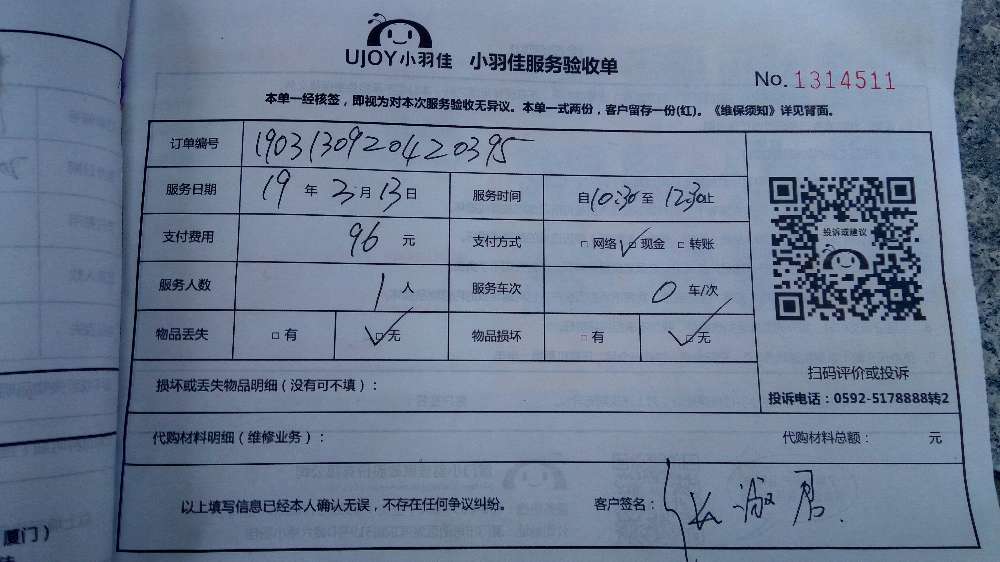 UJOY小羽佳 小羽佳服务验收单
No. 1314511
本单一经核签，即视为对本次服务验收无异议。本单一式两份，客户留存一份(红)。《维保须知》详见背面。
订单编号 1903130920420395
服务日期 19 年 3 月 13 日 服务时间 自10:30至 12:30止
支付费用 96 元 支付方式 □ 网络 □ 现金 □ 转账
投诉或建议
服务人数 1 人 服务车次 0 车/次
物品丢失 □ 有 □ 无 物品损坏 □ 有 □ 无
扫码评价或投诉
损坏或丢失物品明细（没有可不填）：
投诉电话：0592-5178888转2
代购材料明细（维修业务）： 代购材料总额： 元
以上填写信息已经本人确认无误，不存在任何争议纠纷。 客户签名：
厦门）